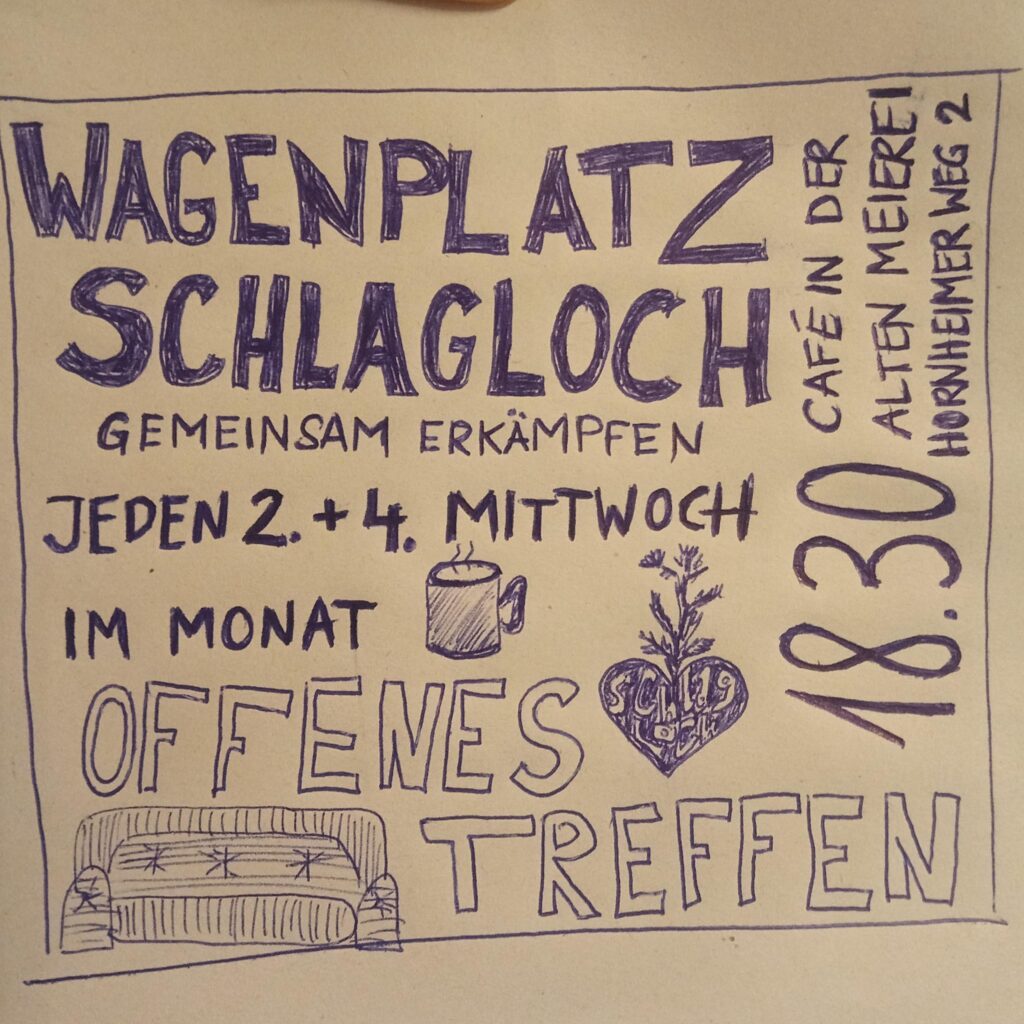 WAGENPLATZ
SCHLAGLOCH
GEMEINSAM ERKÄMPFEN
JEDEN 2. + 4. MITTWOCH
IM MONAT
OFFENES
TREFFEN
SCHLAG
LOCH
18.30
CAFÉ IN DER
ALTEN MEIEREI
HORNHEIMER WEG 2